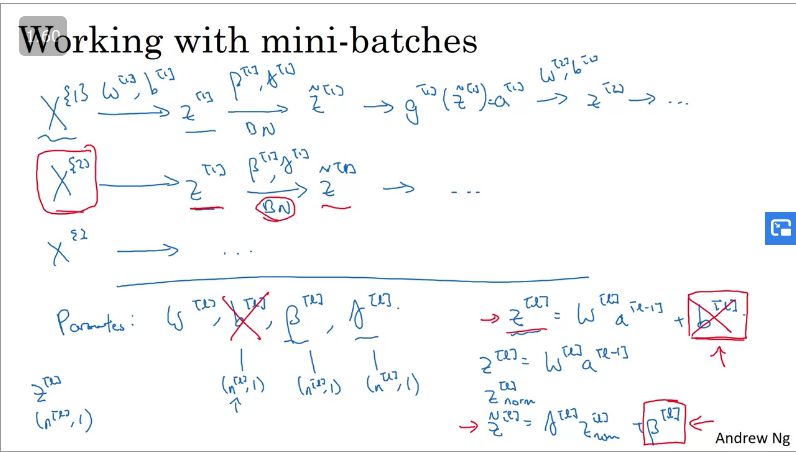 1.60
Working with mini-batches
X^{1} W^[1], b^[1] → z^[1] β^[1], γ^[1] → BN z̃^[1] → g^[1](z̃^[1]) = a^[1] W^[2], b^[2] → z^[2] → ...
X^{2} → z^[1] β^[1], γ^[1] → BN z̃^[1] → ...
X^{3} → ...
Parameters: W^[l], b^[l], β^[l], γ^[l].
(n^[l], 1) (n^[l], 1) (n^[l], 1)
z^[l]
(n^[l], 1)
→ z^[l] = W^[l] a^[l-1] + b^[l].
z^[l] = W^[l] a^[l-1]
z^[l]_norm
→ z̃^[l] = γ^[l] z^[l]_norm + β^[l] ←
Andrew Ng